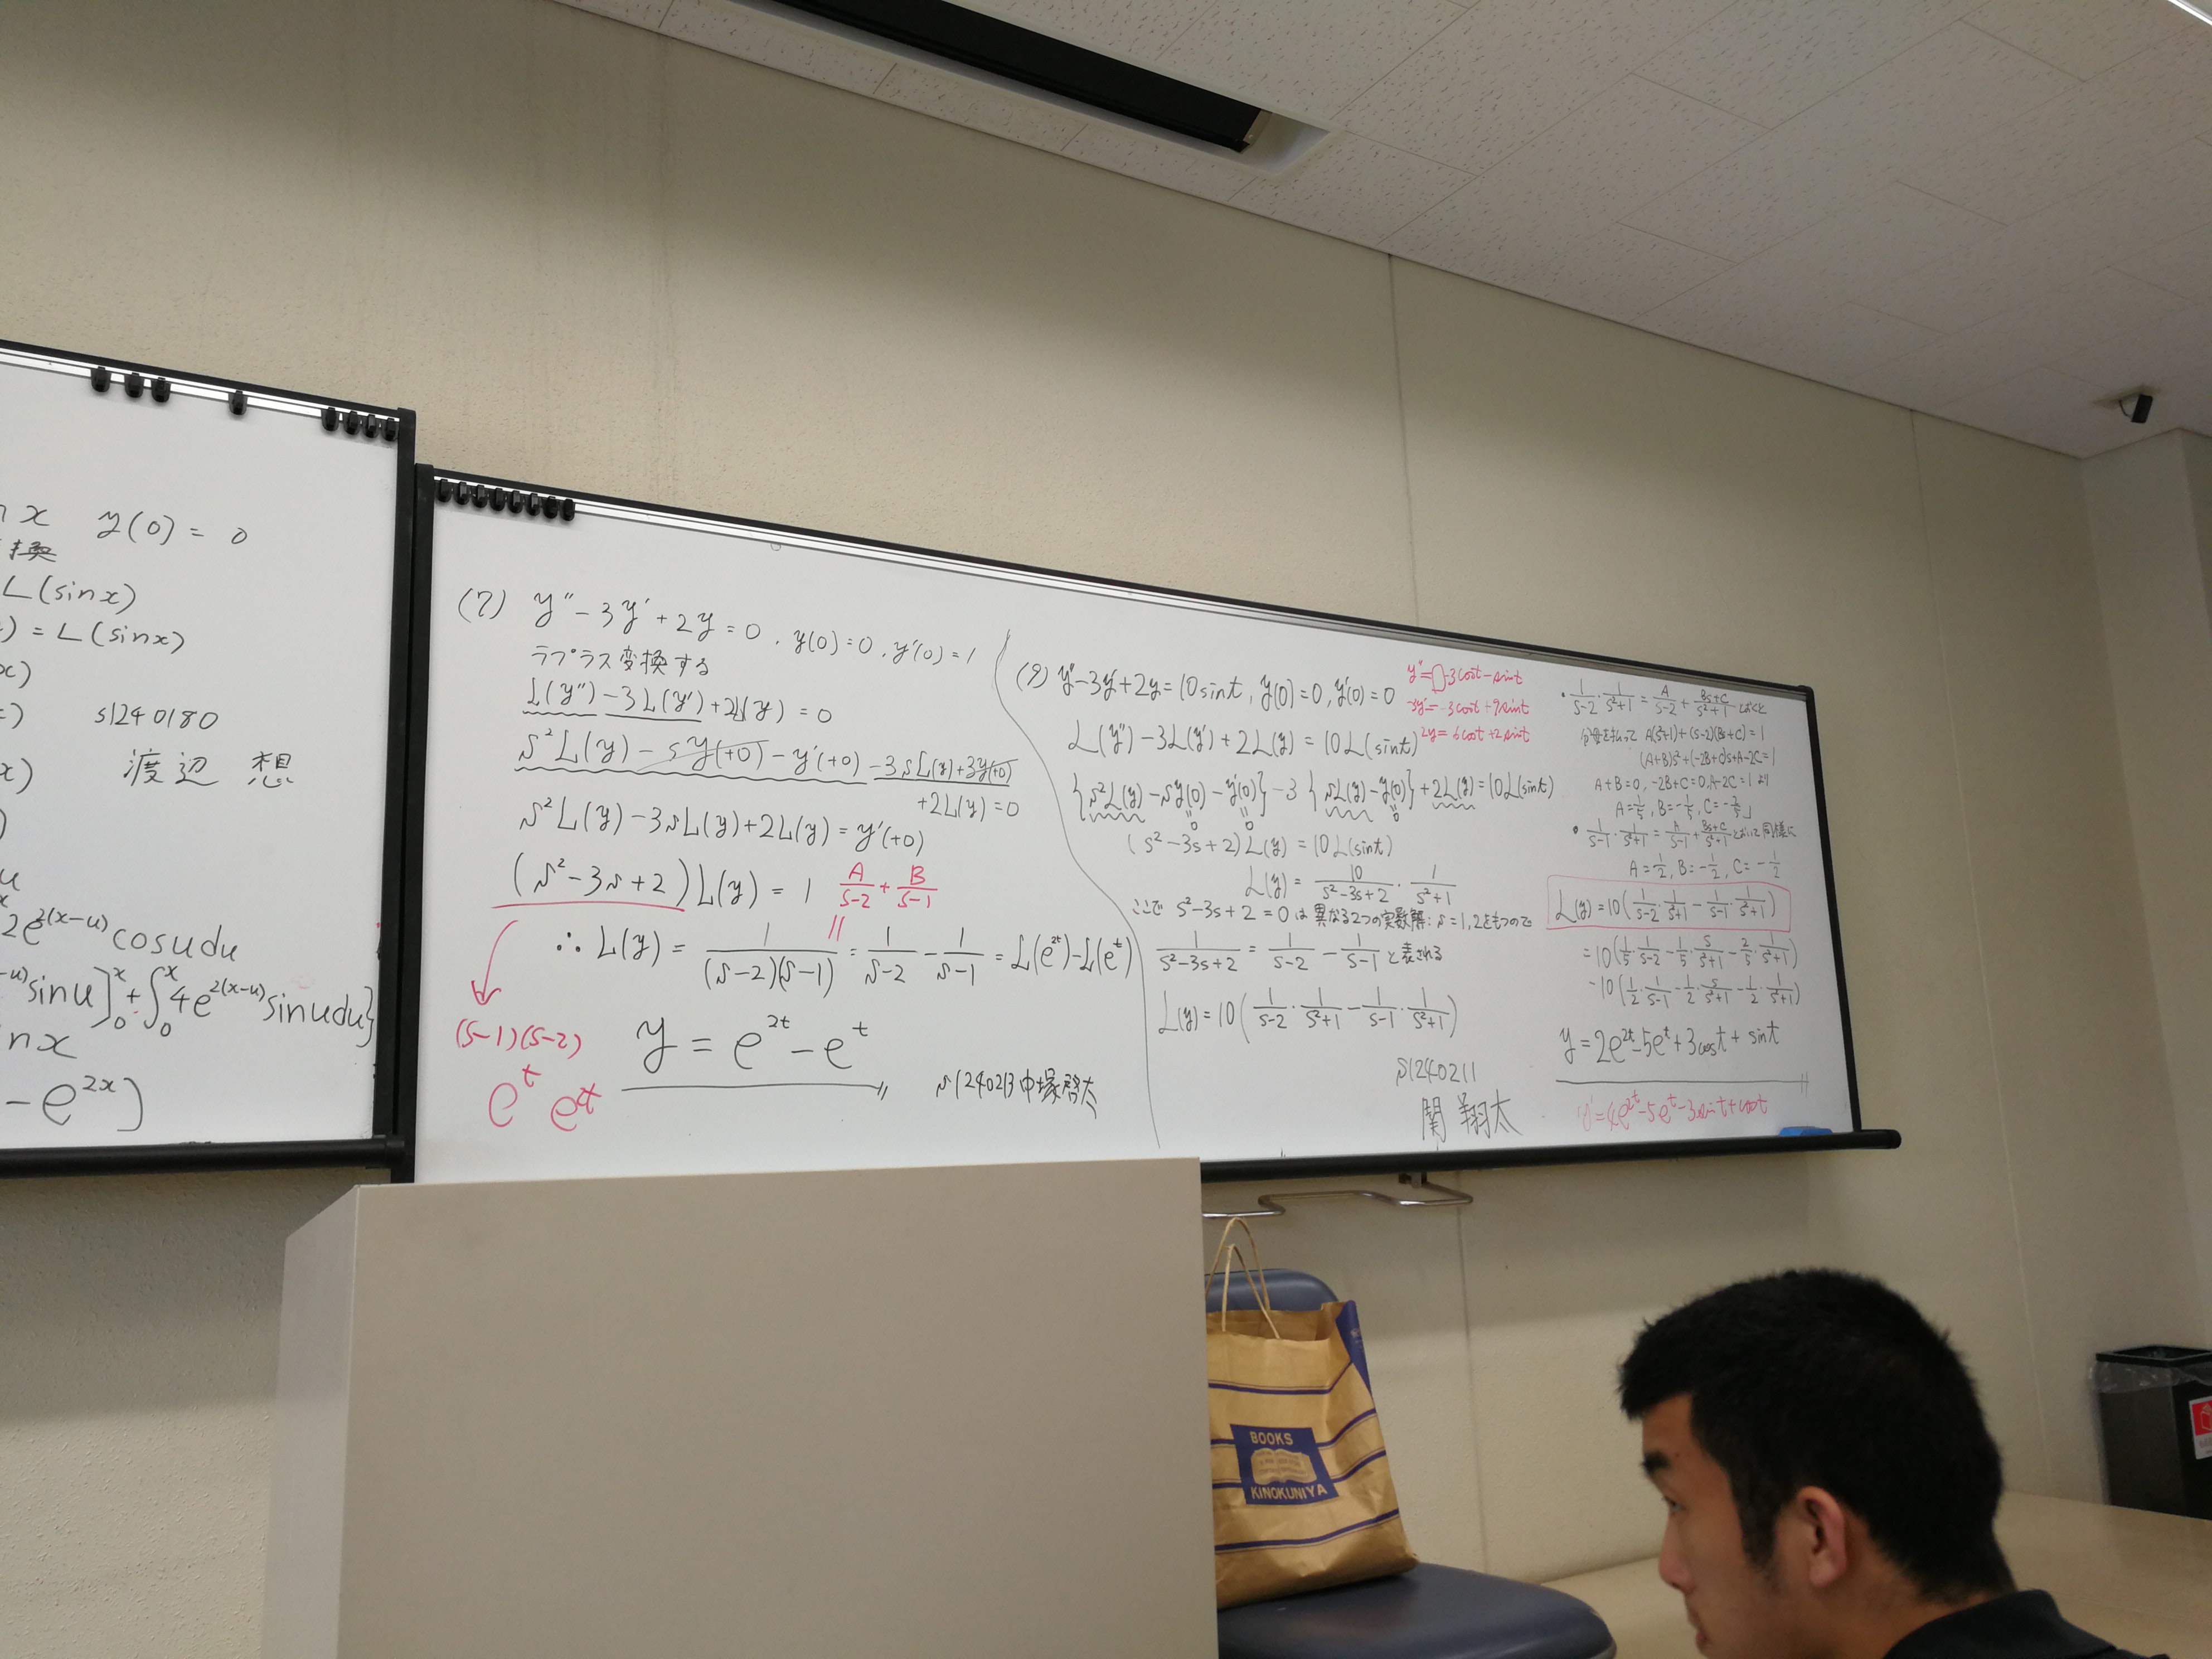 x y(0) = 0
換
L(sinx)
) = L(sinx)
x)
s1240180
x)
渡辺 想
2e^{2(x-u)}cosudu
sinu]_0^x + ∫_0^x 4e^{2(x-u)}sinudu}
nx
- e^{2x})
(7) y'' - 3y' + 2y = 0 , y(0) = 0 , y'(0) = 1
ラプラス変換する
L(y'') - 3L(y') + 2L(y) = 0
s²L(y) - sy(+0) - y'(+0) - 3sL(y) + 3y(+0)
+2L(y) = 0
s²L(y) - 3sL(y) + 2L(y) = y'(+0)
(s² - 3s + 2)L(y) = 1 A/(s-2) + B/(s-1)
∴ L(y) = 1/((s-2)(s-1)) = 1/(s-2) - 1/(s-1) = L(e^{2t}) - L(e^t)
(s-1)(s-2)
y = e^{2t} - e^t
e^t e^{2t}
s1240213 中塚啓太
(9) y'' - 3y' + 2y = 10sint , y(0) = 0 , y'(0) = 0
L(y'') - 3L(y') + 2L(y) = 10L(sint)
{s²L(y) - sy(0) - y'(0)} - 3{sL(y) - y(0)} + 2L(y) = 10L(sint)
0 0 0
(s² - 3s + 2)L(y) = 10L(sint)
L(y) = 10/(s²-3s+2) · 1/(s²+1)
ここで s² - 3s + 2 = 0 は異なる2つの実数解: s = 1,2をもつので
1/(s²-3s+2) = 1/(s-2) - 1/(s-1) と表される
L(y) = 10(1/(s-2) · 1/(s²+1) - 1/(s-1) · 1/(s²+1))
s1240211
関 翔太
-3cost - sint
-3cost + 9sint
2y = 6cost + 2sint
・1/(s-2) · 1/(s²+1) = A/(s-2) + (Bs+C)/(s²+1) とおくと
分母をはらって A(s²+1) + (s-2)(Bs+C) = 1
(A+B)s² + (-2B+C)s + A-2C = 1
A+B = 0, -2B+C = 0, A-2C = 1 より
A = 1/5, B = -1/5, C = -2/5
・1/(s-1) · 1/(s²+1) = A/(s-1) + (Bs+C)/(s²+1) とおいて同様に
A = 1/2, B = -1/2, C = -1/2
L(y) = 10(1/(s-2) · 1/(s²+1) - 1/(s-1) · 1/(s²+1))
= 10(1/5 · 1/(s-2) - 1/5 · s/(s²+1) - 2/5 · 1/(s²+1))
- 10(1/2 · 1/(s-1) - 1/2 · s/(s²+1) - 1/2 · 1/(s²+1))
y = 2e^{2t} - 5e^t + 3cost + sint
y' = 4e^{2t} - 5e^t - 3sint + cost
BOOKS
KINOKUNIYA